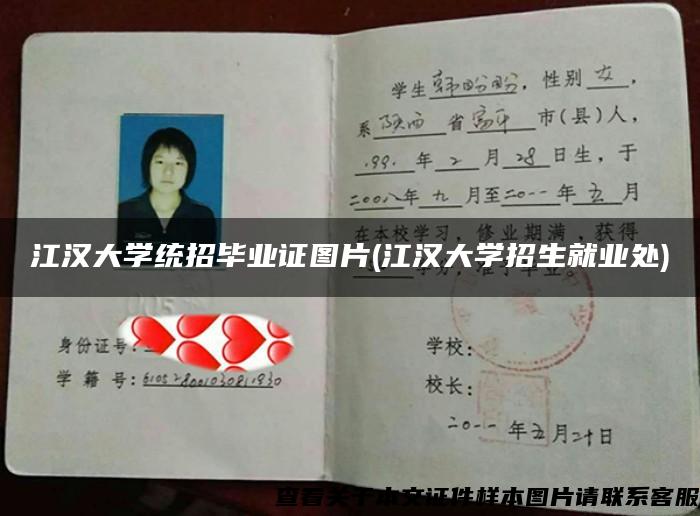 学生韩盼盼，性别女，
系陕西省富平市(县)人，
199.年2月28日生，于
二00八年九月至二0一一年五月
在本校学习，修业期满，获得
江汉大学统招毕业证图片(江汉大学招生就业处)
身份证号：
学籍号：
学校：
校长：
二0一一年五月二十日
查看关于本文证件样本图片请联系客服